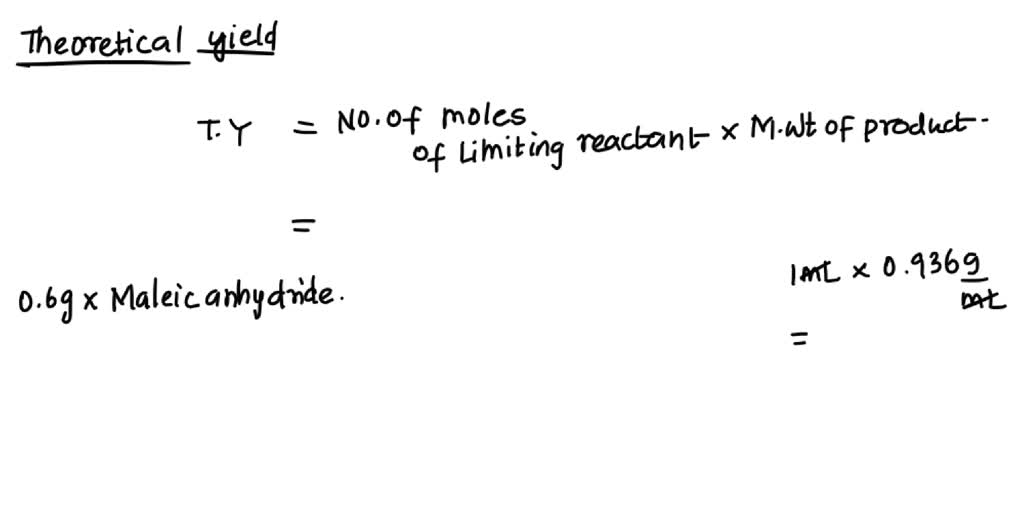 Theoretical yield
T.Y = No. of moles
of Limiting reactant × M.wt of product.
=
1mL × 0.936g/mL
0.6g × Maleic anhydride.
=